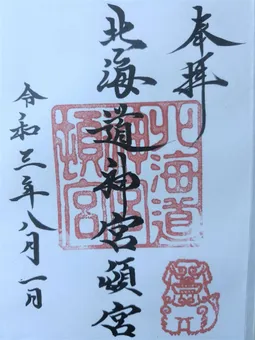 奉拝
北海道神宮頓宮
北海道神宮頓宮
令和三年八月一日